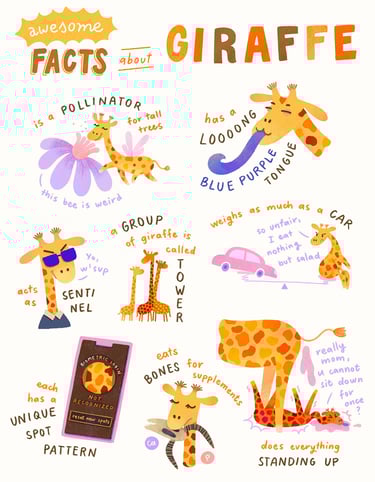 awesome
FACTS about GIRAFFE
is a POLLINATOR
for tall
trees
this bee is weird
has a
LOOOONG
BLUE PURPLE
TONGUE
acts
as
SENTI
NEL
Yo,
w'sup
a GROUP
of giraffe is
called
TOWER
weighs as much as a CAR
so unfair,
I eat
nothing
but salad
each
has a
UNIQUE
SPOT
PATTERN
BIOMETRIC SCAN
NOT
RECOGNIZED
read new spots
eats
BONES for supplements
Ca
P
really
mom,
u cannot
sit down
for
once
?
does everything
STANDING UP